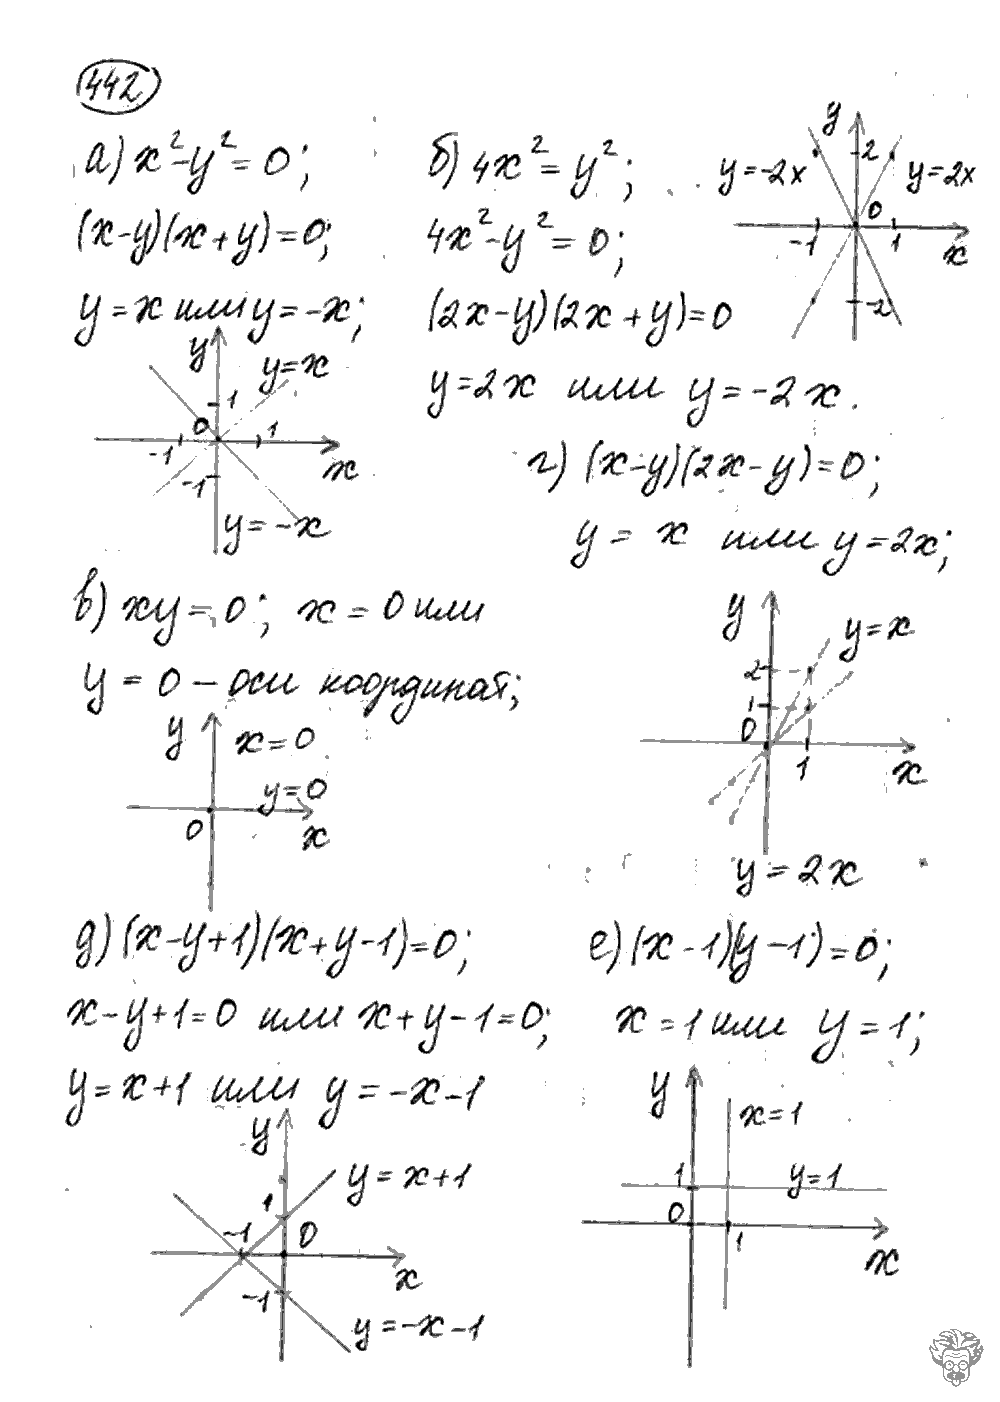 442
а) x²-y²=0;
(x-y)(x+y)=0;
y=x или y=-x;
y
y=x
1
0
-1
1
x
-1
y=-x
б) 4x²=y²;
4x²-y²=0;
(2x-y)(2x+y)=0
y=2x или y=-2x.
y
2
y=-2x
y=2x
0
-1
1
x
-2
в) xy=0; x=0 или
y=0 – оси координат;
y
x=0
y=0
0
x
г) (x-y)(2x-y)=0;
y = x или y=2x;
y
y=x
2
1
0
1
x
y=2x
д) (x-y+1)(x+y-1)=0;
x-y+1=0 или x+y-1=0;
y=x+1 или y=-x-1
y
y=x+1
1
-1
0
x
-1
y=-x-1
е) (x-1)(y-1)=0;
x=1 или y=1;
y
x=1
1
y=1
0
1
x